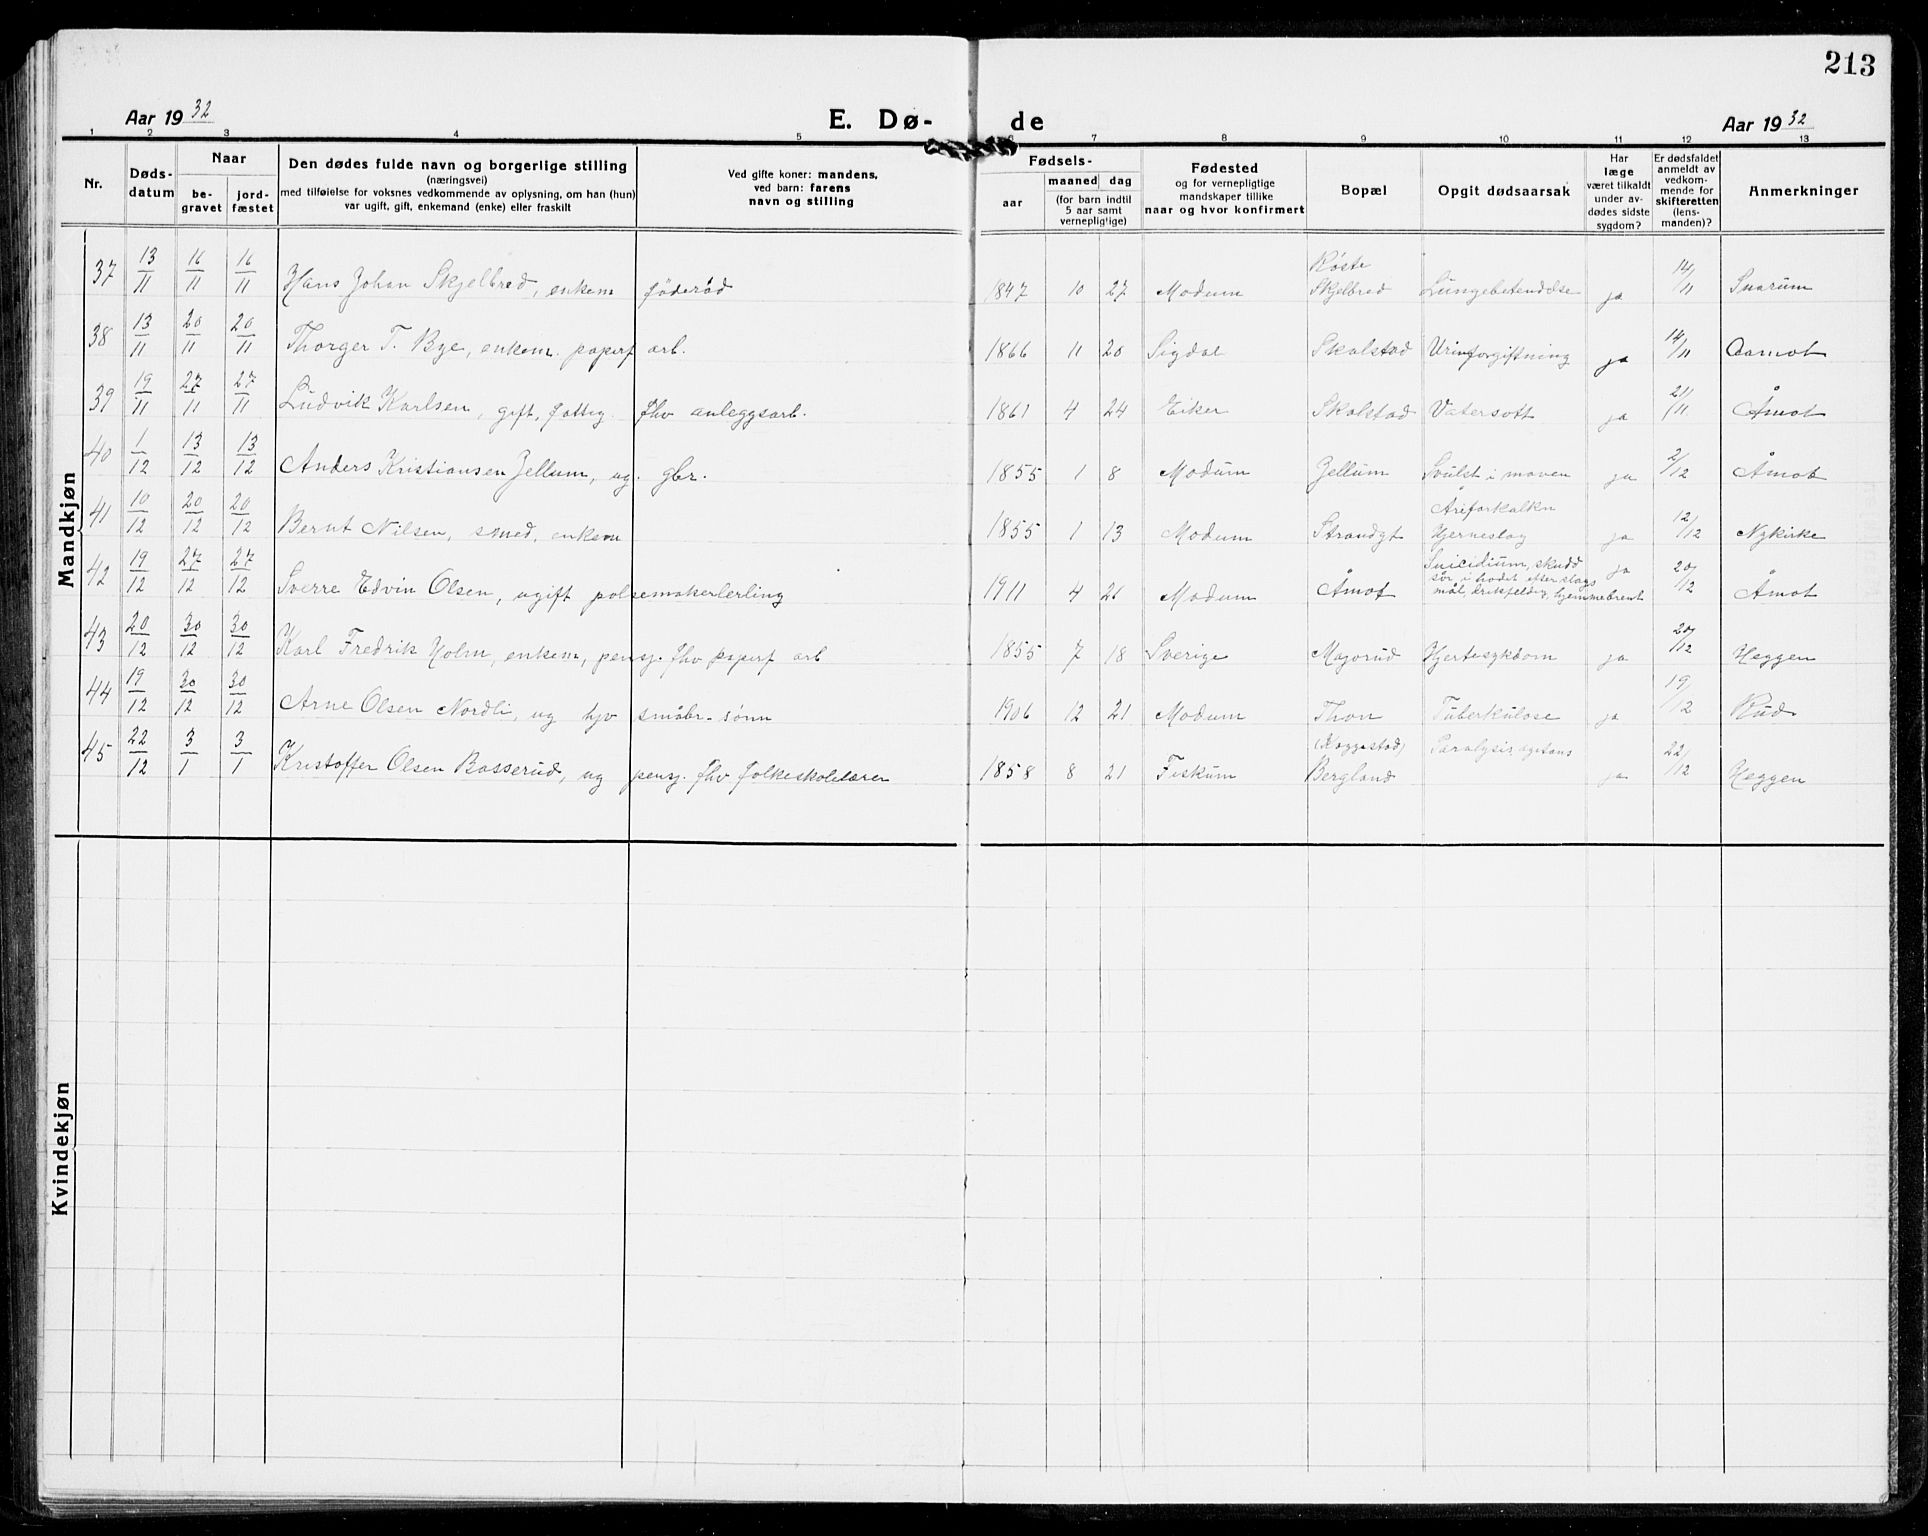 213
Aar 1932 E. Dø- de Aar 1932
1 2 3 4 5 6 7 8 9 10 11 12 13
Nr.
Døds-
datum
Naar
be-
gravet
jord-
fæstet
Den dødes fulde navn og borgerlige stilling
(næringsvei)
med tilføielse for voksnes vedkommende av oplysning, om han (hun)
var ugift, gift, enkemand (enke) eller fraskilt
Ved gifte koner: mandens,
ved barn: farens
navn og stilling
Fødsels-
aar
maaned dag
(for barn indtil
5 aar samt
vernepligtige)
Fødested
og for vernepligtige
mandskaper tillike
naar og hvor konfirmert
Bopæl
Opgit dødsaarsak
Har
læge
været tilkaldt
under av-
dødes sidste
sygdom?
Er dødsfaldet
anmeldt av
vedkom-
mende for
skifteretten
(lens-
manden)?
Anmerkninger
Mandkjøn
37 13/11 16/11 16/11 Hans Johan Skjelbred, enkem föderåd 1847 10 27 Modum Røste Skjelbred Lungebetendelse ja 14/11 Snarum
38 13/11 20/11 20/11 Thorger T. Bye, enkem. papirf arb. 1866 11 20 Sigdal Skalstad Urinforgiftning ja 14/11 Aamot
39 19/11 27/11 27/11 Ludvik Karlsen, gift, fattig. fhv anleggsarb. 1861 4 24 Eiker Skalstad Vatersott ja 21/11 Åmot
40 1/12 13/12 13/12 Anders Kristiansen Jellum, ug. gbr. 1855 1 8 Modum Jellum Svulst i maven ja 2/12 Åmot
41 10/12 20/12 20/12 Bernt Nilsen, smed, enkem 1855 1 13 Modum Strandgt Åreforkalkn Hjerneslag ja 12/12 Nykirke
42 19/12 27/12 27/12 Sverre Edvin Olsen, ugift pølsemakerlerling 1911 4 26 Modum Åmot Suicidium, skudd sår i hodet efter slags mål, drikfeldig, hjemmebrent ja 20/12 Åmot
43 20/12 30/12 30/12 Karl Fredrik Holm, enkem, pensj. fhv papirf arb 1855 7 18 Sverige Majorud Hjertesykdom ja 20/12 Heggen
44 19/12 30/12 30/12 Arne Olsen Nordli, ug hjv småbr. sønn 1906 12 21 Modum Thon Tuberkulose ja 19/12 Rud
45 22/12 3/1 3/1 Kristoffer Olsen Basserud, ug pensj. fhv folkeskolelærer 1858 8 21 Fiskum (Kaggestad) Bergland Paralysis agitans ja 22/12 Heggen
Kvindekjøn